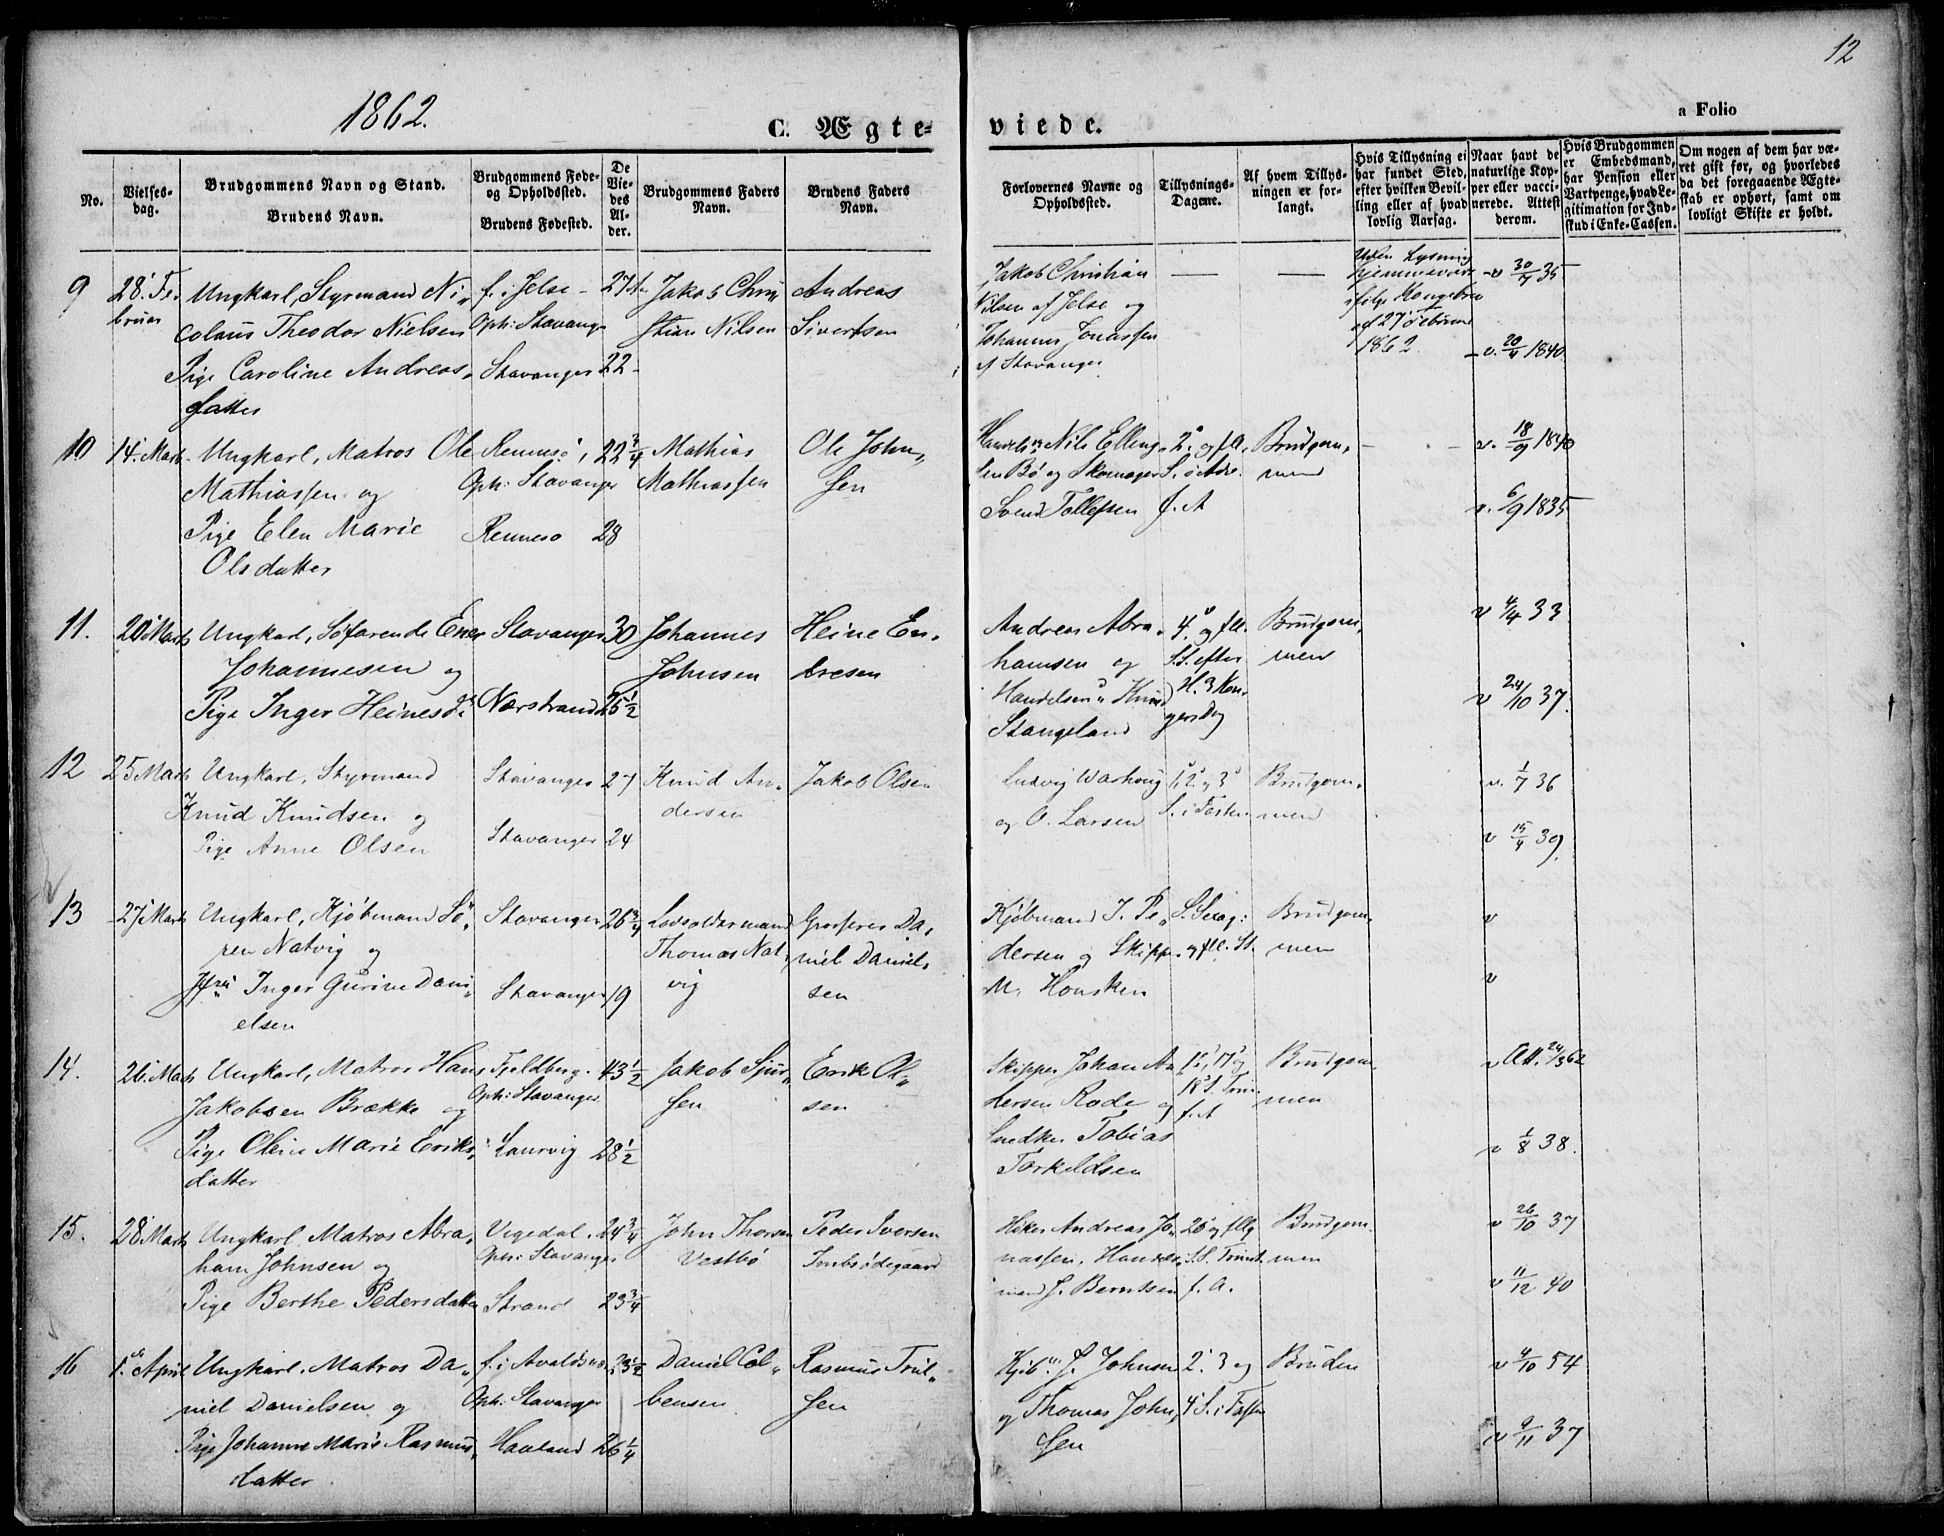 12
1862.
a Folio
C. Ægte-
viede.
No.
Vielses-
dag.
Brudgommens Navn og Stand.
Brudens Navn.
Brudgommens Føde-
og Opholdssted.
Brudens Fødested.
De
Vie-
des
Al-
der.
Brudgommens Faders
Navn.
Brudens Faders
Navn.
Forlovernes Navne og
Opholdssted.
Tillysnings-
Dagene.
Af hvem Tillys-
ningen er for-
langt.
Hvis Tillysning ei
har fundet Sted,
efter hvilken Bevil-
ling eller af hvad
lovlig Aarsag.
Naar havt de
naturlige Kop-
per eller vacci-
nerede. Attest
derom.
Hvis Brudgommen
er Embedsmand,
har Pension eller
Vartpenge, hvad Le-
gitimation for Ind-
skud i Enke-Cassen.
Om nogen af dem har væ-
ret gift før, og hvorledes
da det foregaaende Ægte-
skab er ophørt, samt om
lovligt Skifte er holdt.
9
28. Fe-
bruar
Ungkarl, Styrmand Ni-
colaus Theodor Nielsen
Pige Caroline Andreas-
datter
f. i Jelse
Oph: Stavanger
Stavanger
22
Jakob Chri-
stian Nilsen
Andreas
Sivertsen
Jakob Christian
Nilsen af Jelse og
Johannes Jonassen
af Stavanger
Uden Lysning
ifølge Kongebrev
1862.
v 35
v. 20/4 1840
10
14. Marts
Ungkarl, Matros Ole
Mathiassen og
Pige Elen Marie
Olsdatter
Rennesø,
Oph: Stavanger
Rennesø
22 3/4
28
Mathias
Mathiassen
Ole John-
sen
Nils Elling-
sen Bø og Skomager
Svend Tollefsen
f. A
Brudgom-
men
v. 18/9 1840
v. 6/9 1835
11.
20 Marts
Ungkarl, Søfarende Ener
Johannesen og
Pige Inger Heinesd.
Stavanger
Nærstrand
30
25 1/2
Johannes
Johnsen
Heine En-
dresen
Andreas Abra-
hamsen og
Handelsm. Knud
Stangeland
4. og fll.
S.S. efter
H. 3 Kon-
gersdag
Brudgom-
men
v 4/4 33
v 24/10 37.
12
25 Marts
Ungkarl, Styrmand
Knud Knudsen og
Pige Anne Olsen
Stavanger
Stavanger
27
24
Knud An-
dersen
Jakob Olsen
Ludvig Warhoug
og O. Larsen
1, 2. og 3
S. i Fasten
Brudgom-
men
v. 1/7 36
v 15/4 39.
13
27 Marts
Ungkarl, Kjøbmand Sø-
ren Natvig og
Jfru Inger Gurine Dani-
elsen
Stavanger
Stavanger
26 3/4
19
Lodsoldermand
Thomas Nat-
vig
Grosserer Da-
niel Daniel-
sen
Kjøbmand J. Pe-
dersen og Skipper
M. Housken
S. Sexag:
og fll. St.
Brudgom-
men
v
v
14.
26. Marts
Ungkarl, Matros Hans
Jakobsen Brække og
Pige Oline Marie Eriks-
datter
Fjeldberg.
Oph: Stavanger
Laurvig
43 1/2
28 1/2
Jakob Sjur-
sen
Erik Ol-
sen
Skipper Johan An-
dersen Rode og
Snedker Tobias
Torkeldsen
16, 17 og
18 S. Trin.
f. A
Brudgom-
men
v Att. 24/3 62
v 1/8 38.
15.
28 Marts
Ungkarl, Matros Abra-
ham Johnsen og
Pige Berthe Pedersdatter
Vigedal.
Oph: Stavanger
Strand
24 3/4
23 3/4
John Thorsen
Vestbø
Peder Iversen
Høker Andreas Jo-
nassen, Handels-
mand J. Berntsen
20 og fllg
S.S. Trinit.
f. A.
Brudgom-
men
v 26/10 37
v 11/12 40
16
1. April
Ungkarl, Matros Da-
niel Danielsen og
Pige Johanne Marie Rasmus-
datter
f. i Avaldsnes
Oph: Stavanger
Hauland
23 1/2
26 1/4
Daniel Col-
bensen
Rasmus Truls-
sen
Kjøb. J. Johnsen
og Thomas John-
sen
2. 3 og
4 S. i Fasten
Bruden
v 4/10 54
v 9/11 37